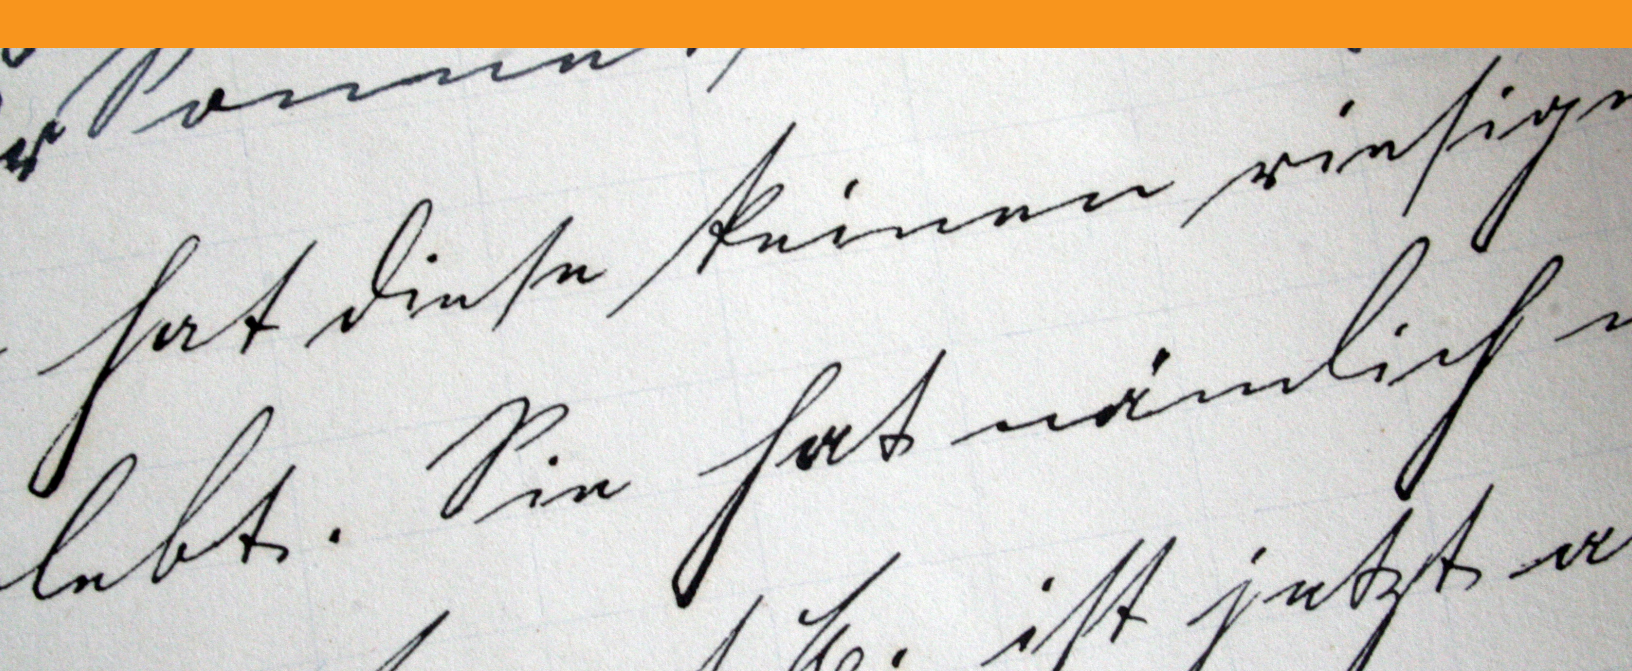 Sonne
hat diese keinen riesige
lebt. Sie hat nämlich
ist jetzt